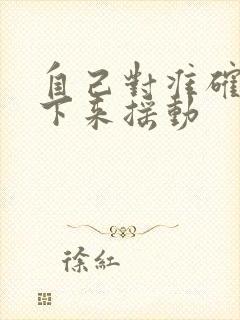 自己對准確
下來搖動
徐紅